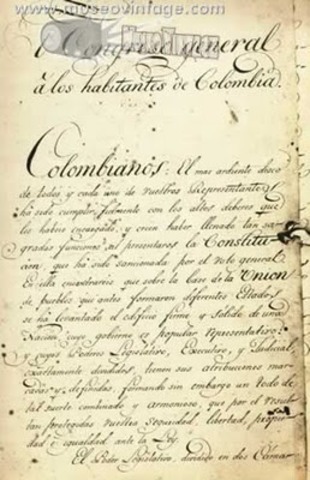 www.museovintage.com
Museo Vintage
Congreso general
á los habitantes de Colombia.
Colombianos: El mas ardiente deseo
de todos y cada uno de vuestros Representantes
ha sido cumplir fielmente con los altos deberes que
les habeis encargado, y creen haber llenado tan sa-
gradas funciones al presentaros la Constitu-
cion, que há sido sancionada por el voto general.
En ella encontrareis que sobre la base de la Union
de pueblos, que antes formaron diferentes Estados,
se ha levantado el edificio firme y solido de una
Nacion, cuyo gobierno es popular representativo:
y cuyos Poderes Legislativo, Executivo, y Judicial,
exactamente divididos, tienen sus atribuciones mar-
cadas y definidas, formando sin embargo un todo de
tal suerte combinado y armonioso, que por el resul-
tan protegidas vuestra seguridad, libertad, propie-
dad é igualdad ante la Ley.
El Poder Legislativo, dividido en dos Cámar